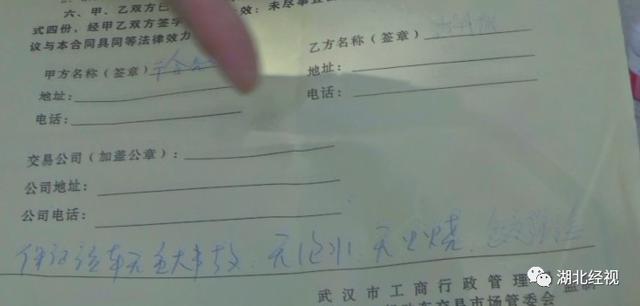 六、甲、乙双方已 效：未尽事宜
式四份，经甲乙双方签字
议与本合同具同等法律效力
甲方名称（签章）
地址：
电话：
乙方名称（签章）
地址：
电话：
交易公司（加盖公章）：
公司地址：
公司电话：
保证该车无重大事故、无泡水、无火烧
武汉市工商行政管理
交易市场管委会 监制
湖北经视